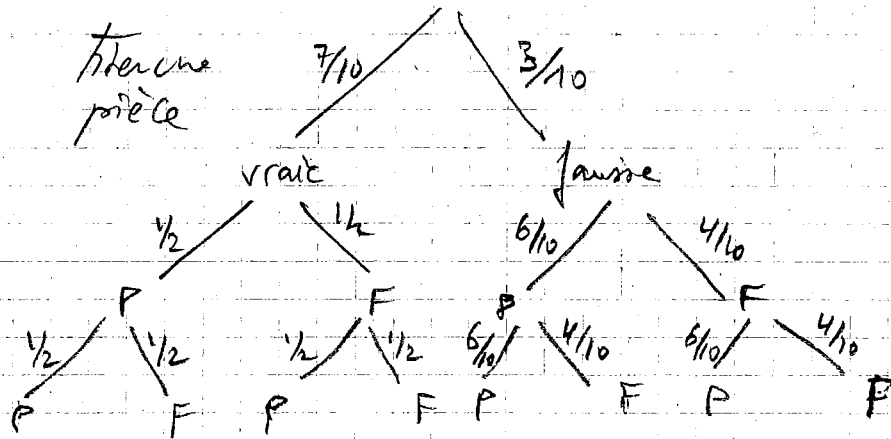 7/10 3/10
pièce
vraie fausse
1/2 1/2 6/10 4/10
P F P F
1/2 1/2 1/2 1/2 6/10 4/10 6/10 4/10
P F P F P F P F